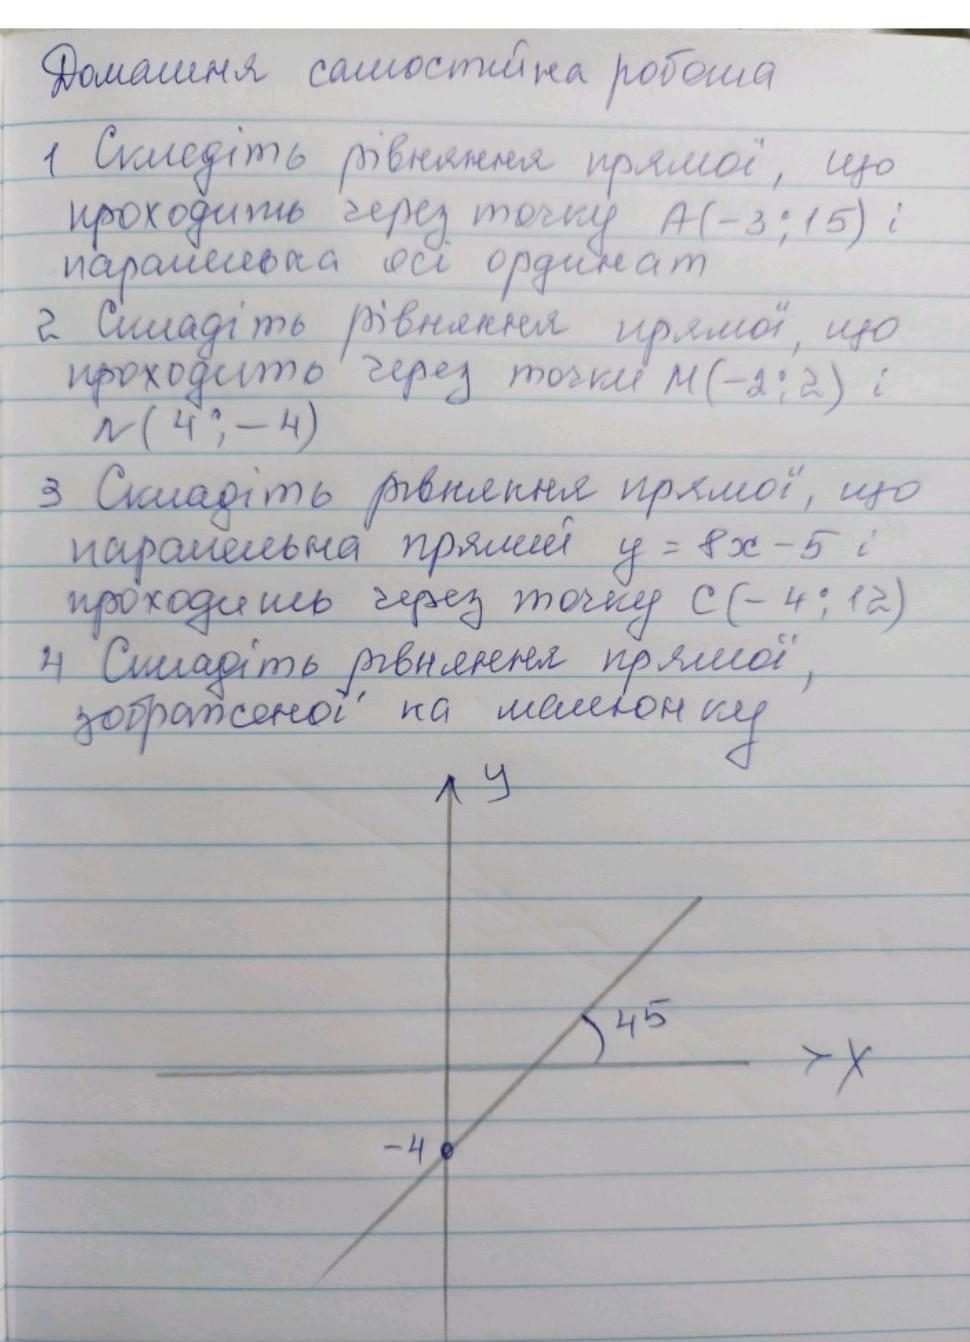 Домашня самостійна робота
1 Складіть рівняння прямої, що
проходить через точку A(-3;15) і
паралельна осі ординат
2 Складіть рівняння прямої, що
проходить через точки M(-2;2) і
N(4;-4)
3 Складіть рівняння прямої, що
паралельна прямій y=8x-5 і
проходить через точку C(-4;12)
4 Складіть рівняння прямої,
зображеної на малюнку
y
45
x
-4